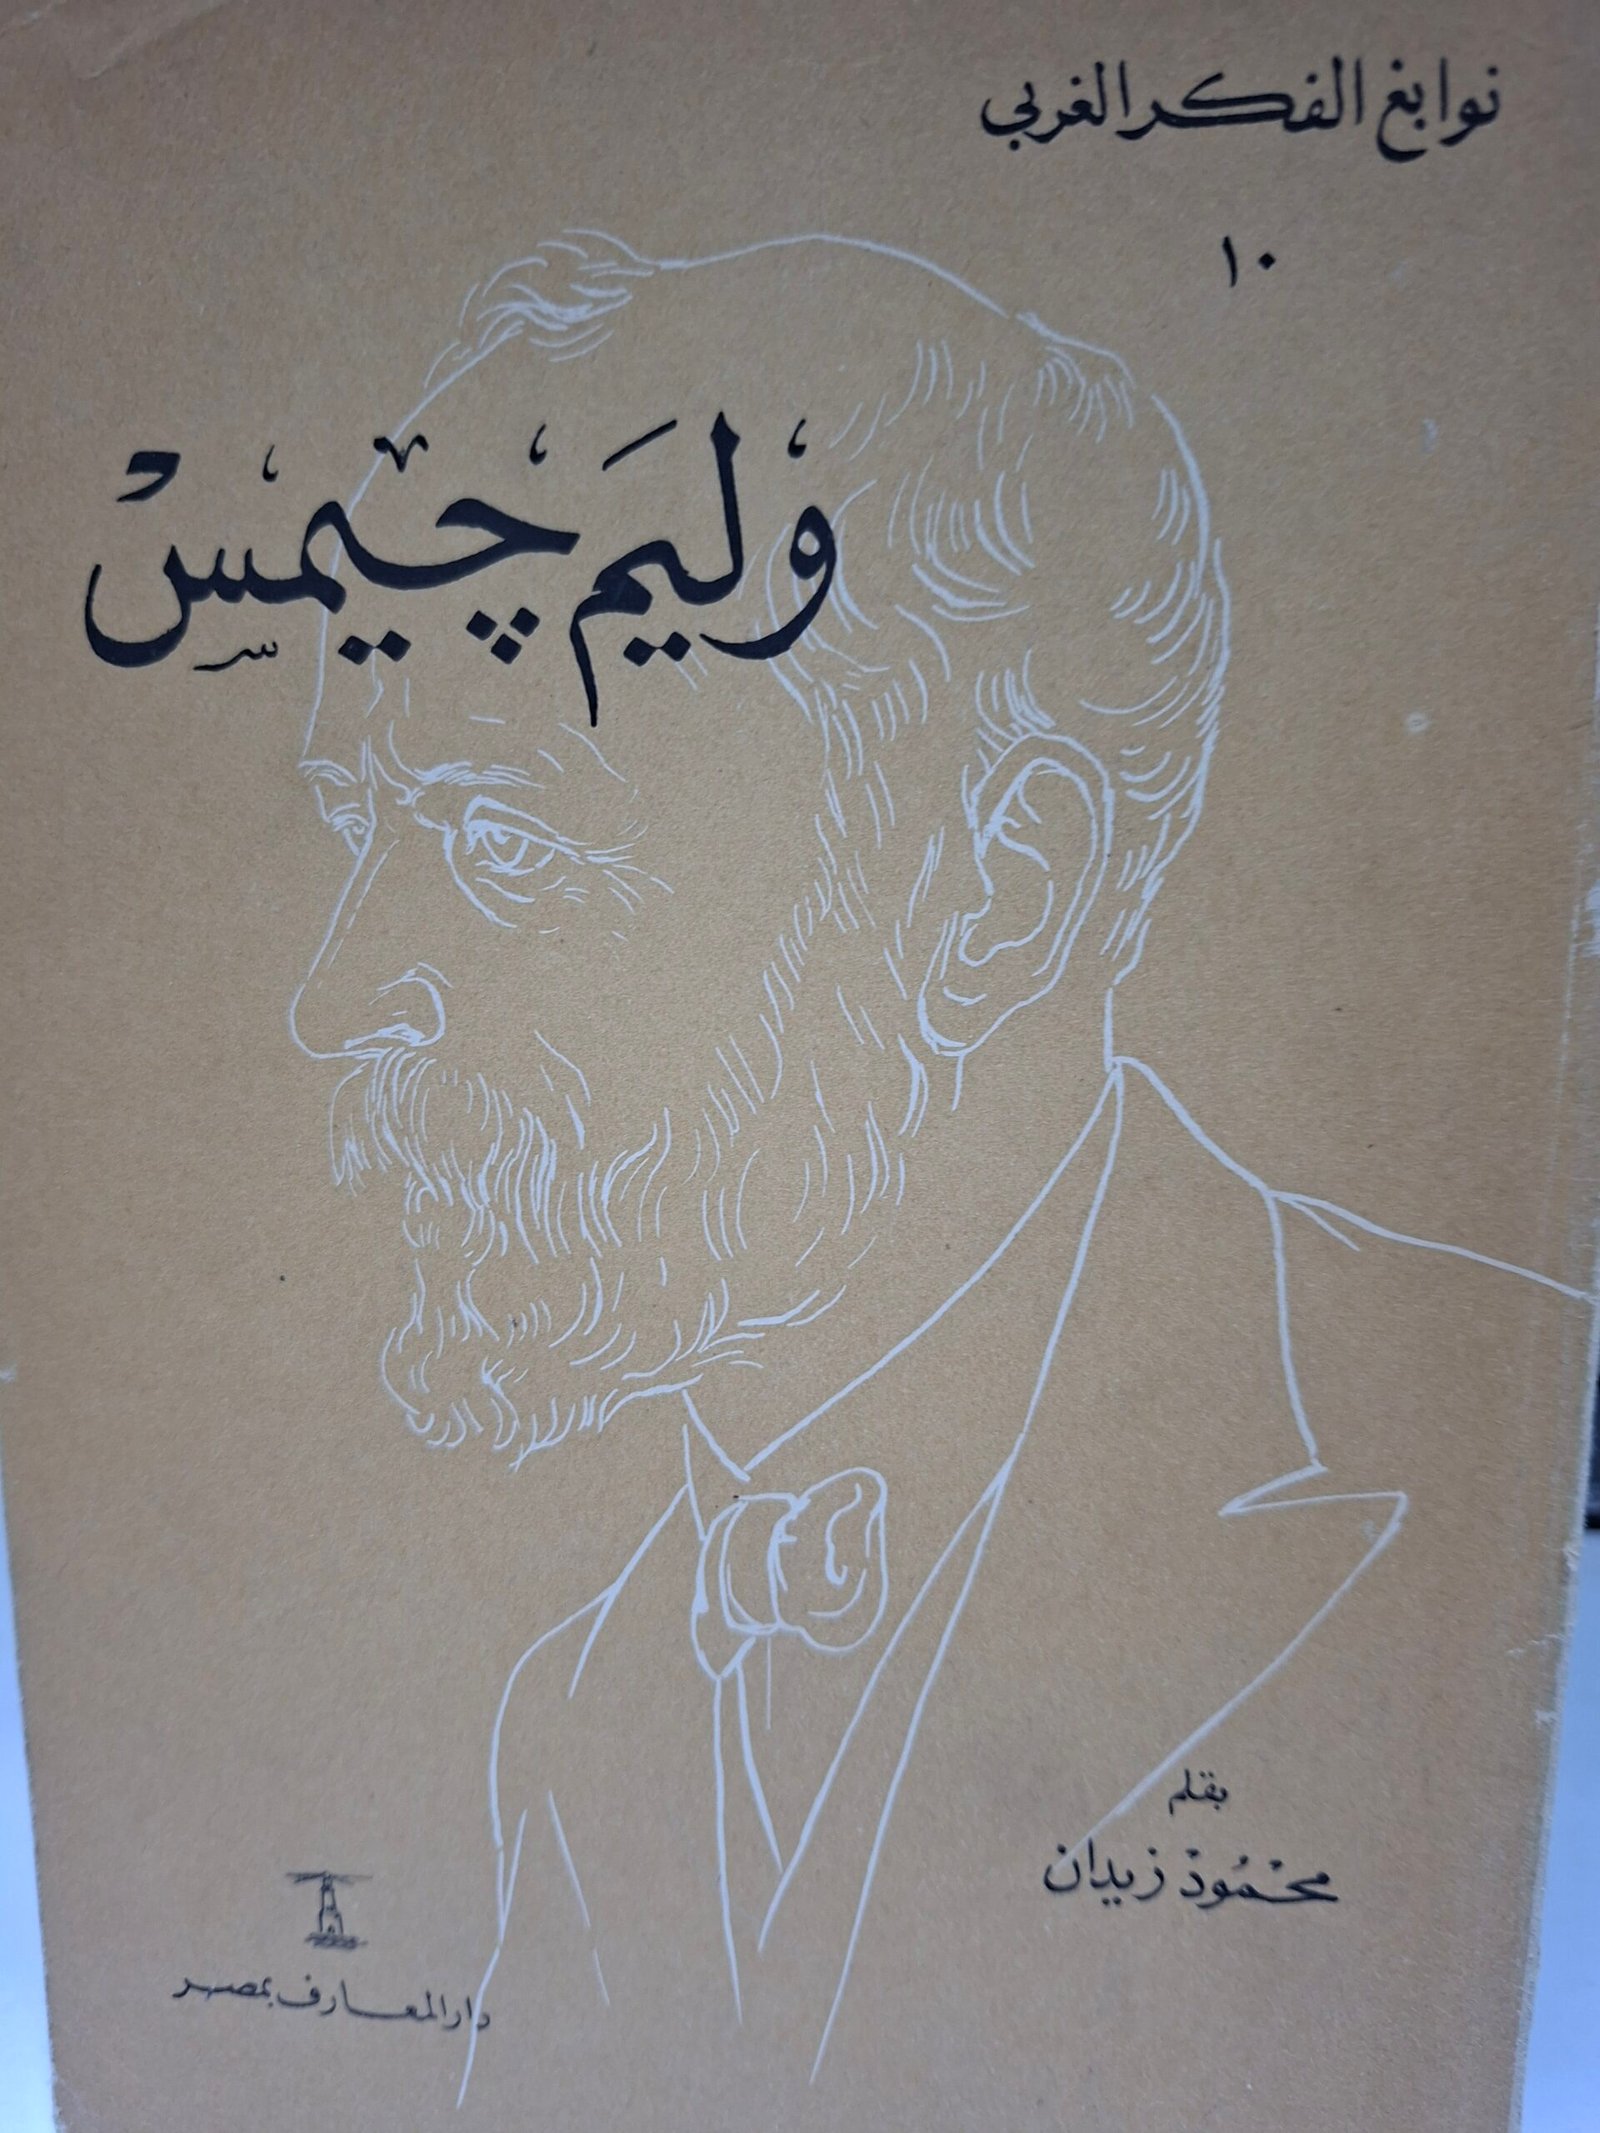 نوابغ الفكر الغربي
١٠
وليم چيمس
بقلم
محمود زيدان
دار المعارف بمصر